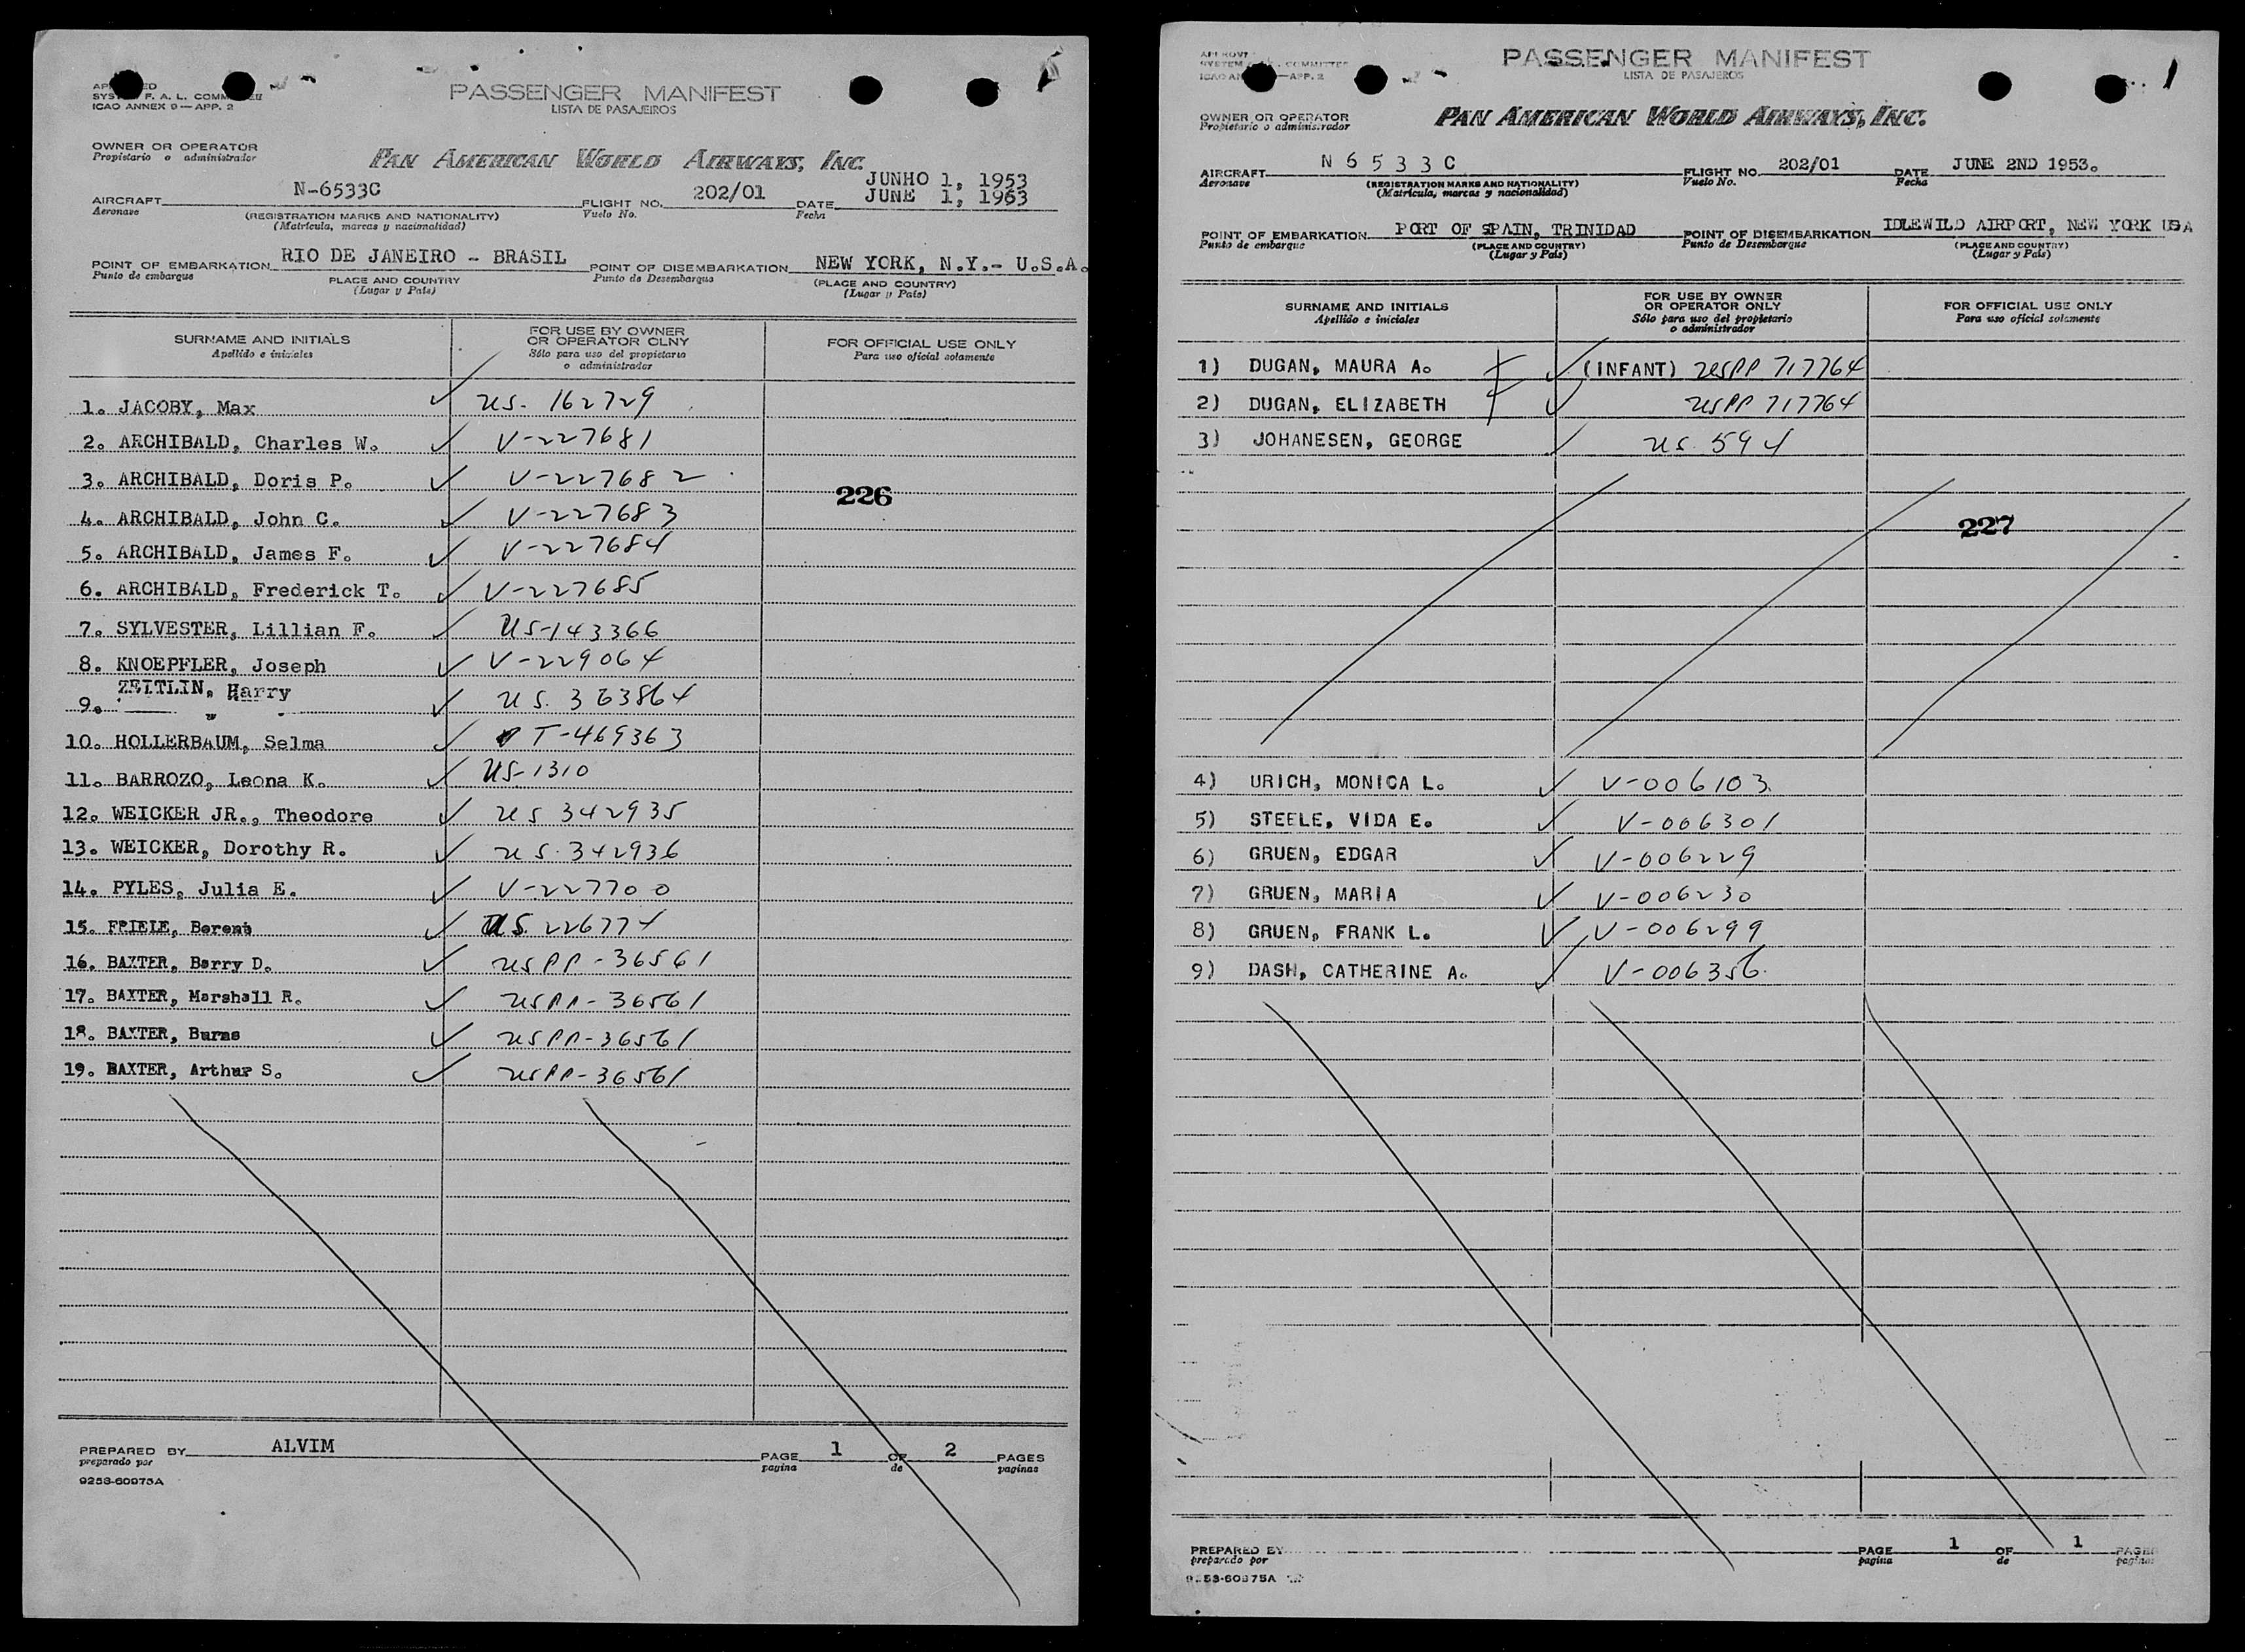 PASSENGER MANIFEST
LISTA DE PASAJEIROS
ICAO ANNEX 9 — APP. 2
OWNER OR OPERATOR
Propietario o administrador
PAN AMERICAN WORLD AIRWAYS, INC.
JUNHO 1, 1953
AIRCRAFT N-6533C FLIGHT NO. 202/01 DATE JUNE 1, 1953
Aeronave (REGISTRATION MARKS AND NATIONALITY) Vuelo No. Fecha
(Matrícula, marcas y nacionalidad)
POINT OF EMBARKATION RIO DE JANEIRO - BRASIL POINT OF DISEMBARKATION NEW YORK, N.Y.- U.S.A.
Punto de embarque PLACE AND COUNTRY Punto de Desembarque (PLACE AND COUNTRY)
(Lugar y País) (Lugar y País)
SURNAME AND INITIALS FOR USE BY OWNER OR OPERATOR OLNY FOR OFFICIAL USE ONLY
Apellido e iniciales Sólo para uso del propietario o administrador Para uso oficial solamente
1. JACOBY, Max US. 162729
2. ARCHIBALD, Charles W. V-227681
3. ARCHIBALD, Doris P. V-227682
226
4. ARCHIBALD, John C. V-227683
5. ARCHIBALD, James F. V-227684
6. ARCHIBALD, Frederick T. V-227685
7. SYLVESTER, Lillian F. US-143366
8. KNOEPFLER, Joseph V-229064
9. ZEITLIN, Harry US. 363864
10. HOLLERBAUM, Selma T-469363
11. BARROZO, Leona K. US-1310
12. WEICKER JR., Theodore US 342935
13. WEICKER, Dorothy R. US. 342936
14. PYLES, Julia E. V-227700
15. FRIELE, Berent US 226774
16. BAXTER, Barry D. USPP-36561
17. BAXTER, Marshall R. USPP-36561
18. BAXTER, Burns USPP-36561
19. BAXTER, Arthur S. USPP-36561
PREPARED BY ALVIM PAGE 1 OF 2 PAGES
preparado por pagina de paginas
9253-60975A
PASSENGER MANIFEST
LISTA DE PASAJEROS
1
OWNER OR OPERATOR
Propietario o administrador
PAN AMERICAN WORLD AIRWAYS, INC.
AIRCRAFT N 6 5 3 3 C FLIGHT NO. 202/01 DATE JUNE 2ND 1953.
Aeronave (REGISTRATION MARKS AND NATIONALITY) Vuelo No. Fecha
(Matrícula, marcas y nacionalidad)
POINT OF EMBARKATION PORT OF SPAIN, TRINIDAD POINT OF DISEMBARKATION IDLEWILD AIRPORT, NEW YORK USA
Punto de embarque (PLACE AND COUNTRY) Punto de Desembarque (PLACE AND COUNTRY)
(Lugar y País) (Lugar y País)
SURNAME AND INITIALS FOR USE BY OWNER OR OPERATOR ONLY FOR OFFICIAL USE ONLY
Apellido e iniciales Sólo para uso del propietario o administrador Para uso oficial solamente
1) DUGAN, MAURA A. (INFANT) USPP 717764
2) DUGAN, ELIZABETH USPP 717764
3) JOHANESEN, GEORGE US. 594
227
4) URICH, MONICA L. V-006103
5) STEELE, VIDA E. V-006301
6) GRUEN, EDGAR V-006229
7) GRUEN, MARIA V-006230
8) GRUEN, FRANK L. V-006299
9) DASH, CATHERINE A. V-006356
PREPARED BY PAGE 1 OF 1 PAGES
preparado por pagina de paginas